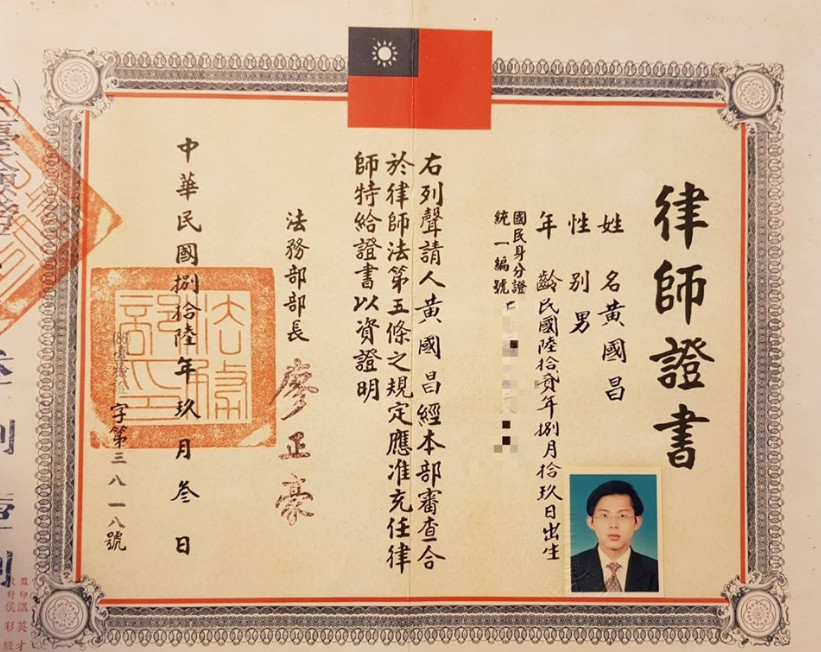 律師證書
姓名黃國昌
性別男
年齡民國陸拾貳年捌月拾玖日出生
國民身分證
統一編號
右列聲請人黃國昌經本部審查合
於律師法第五條之規定應准充任律
師特給證書以資證明
法務部部長 廖正豪
中華民國捌拾陸年玖月叁日
字第三八一八號
法務部印